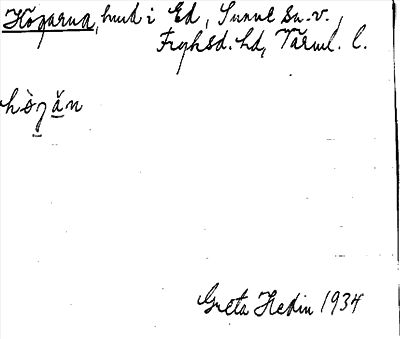 Högarna, hmd i Ed, Sunne sn. v.,
Fryksd. hd, Värml. l.
hò̱gă̱n
Greta Hedin 1934